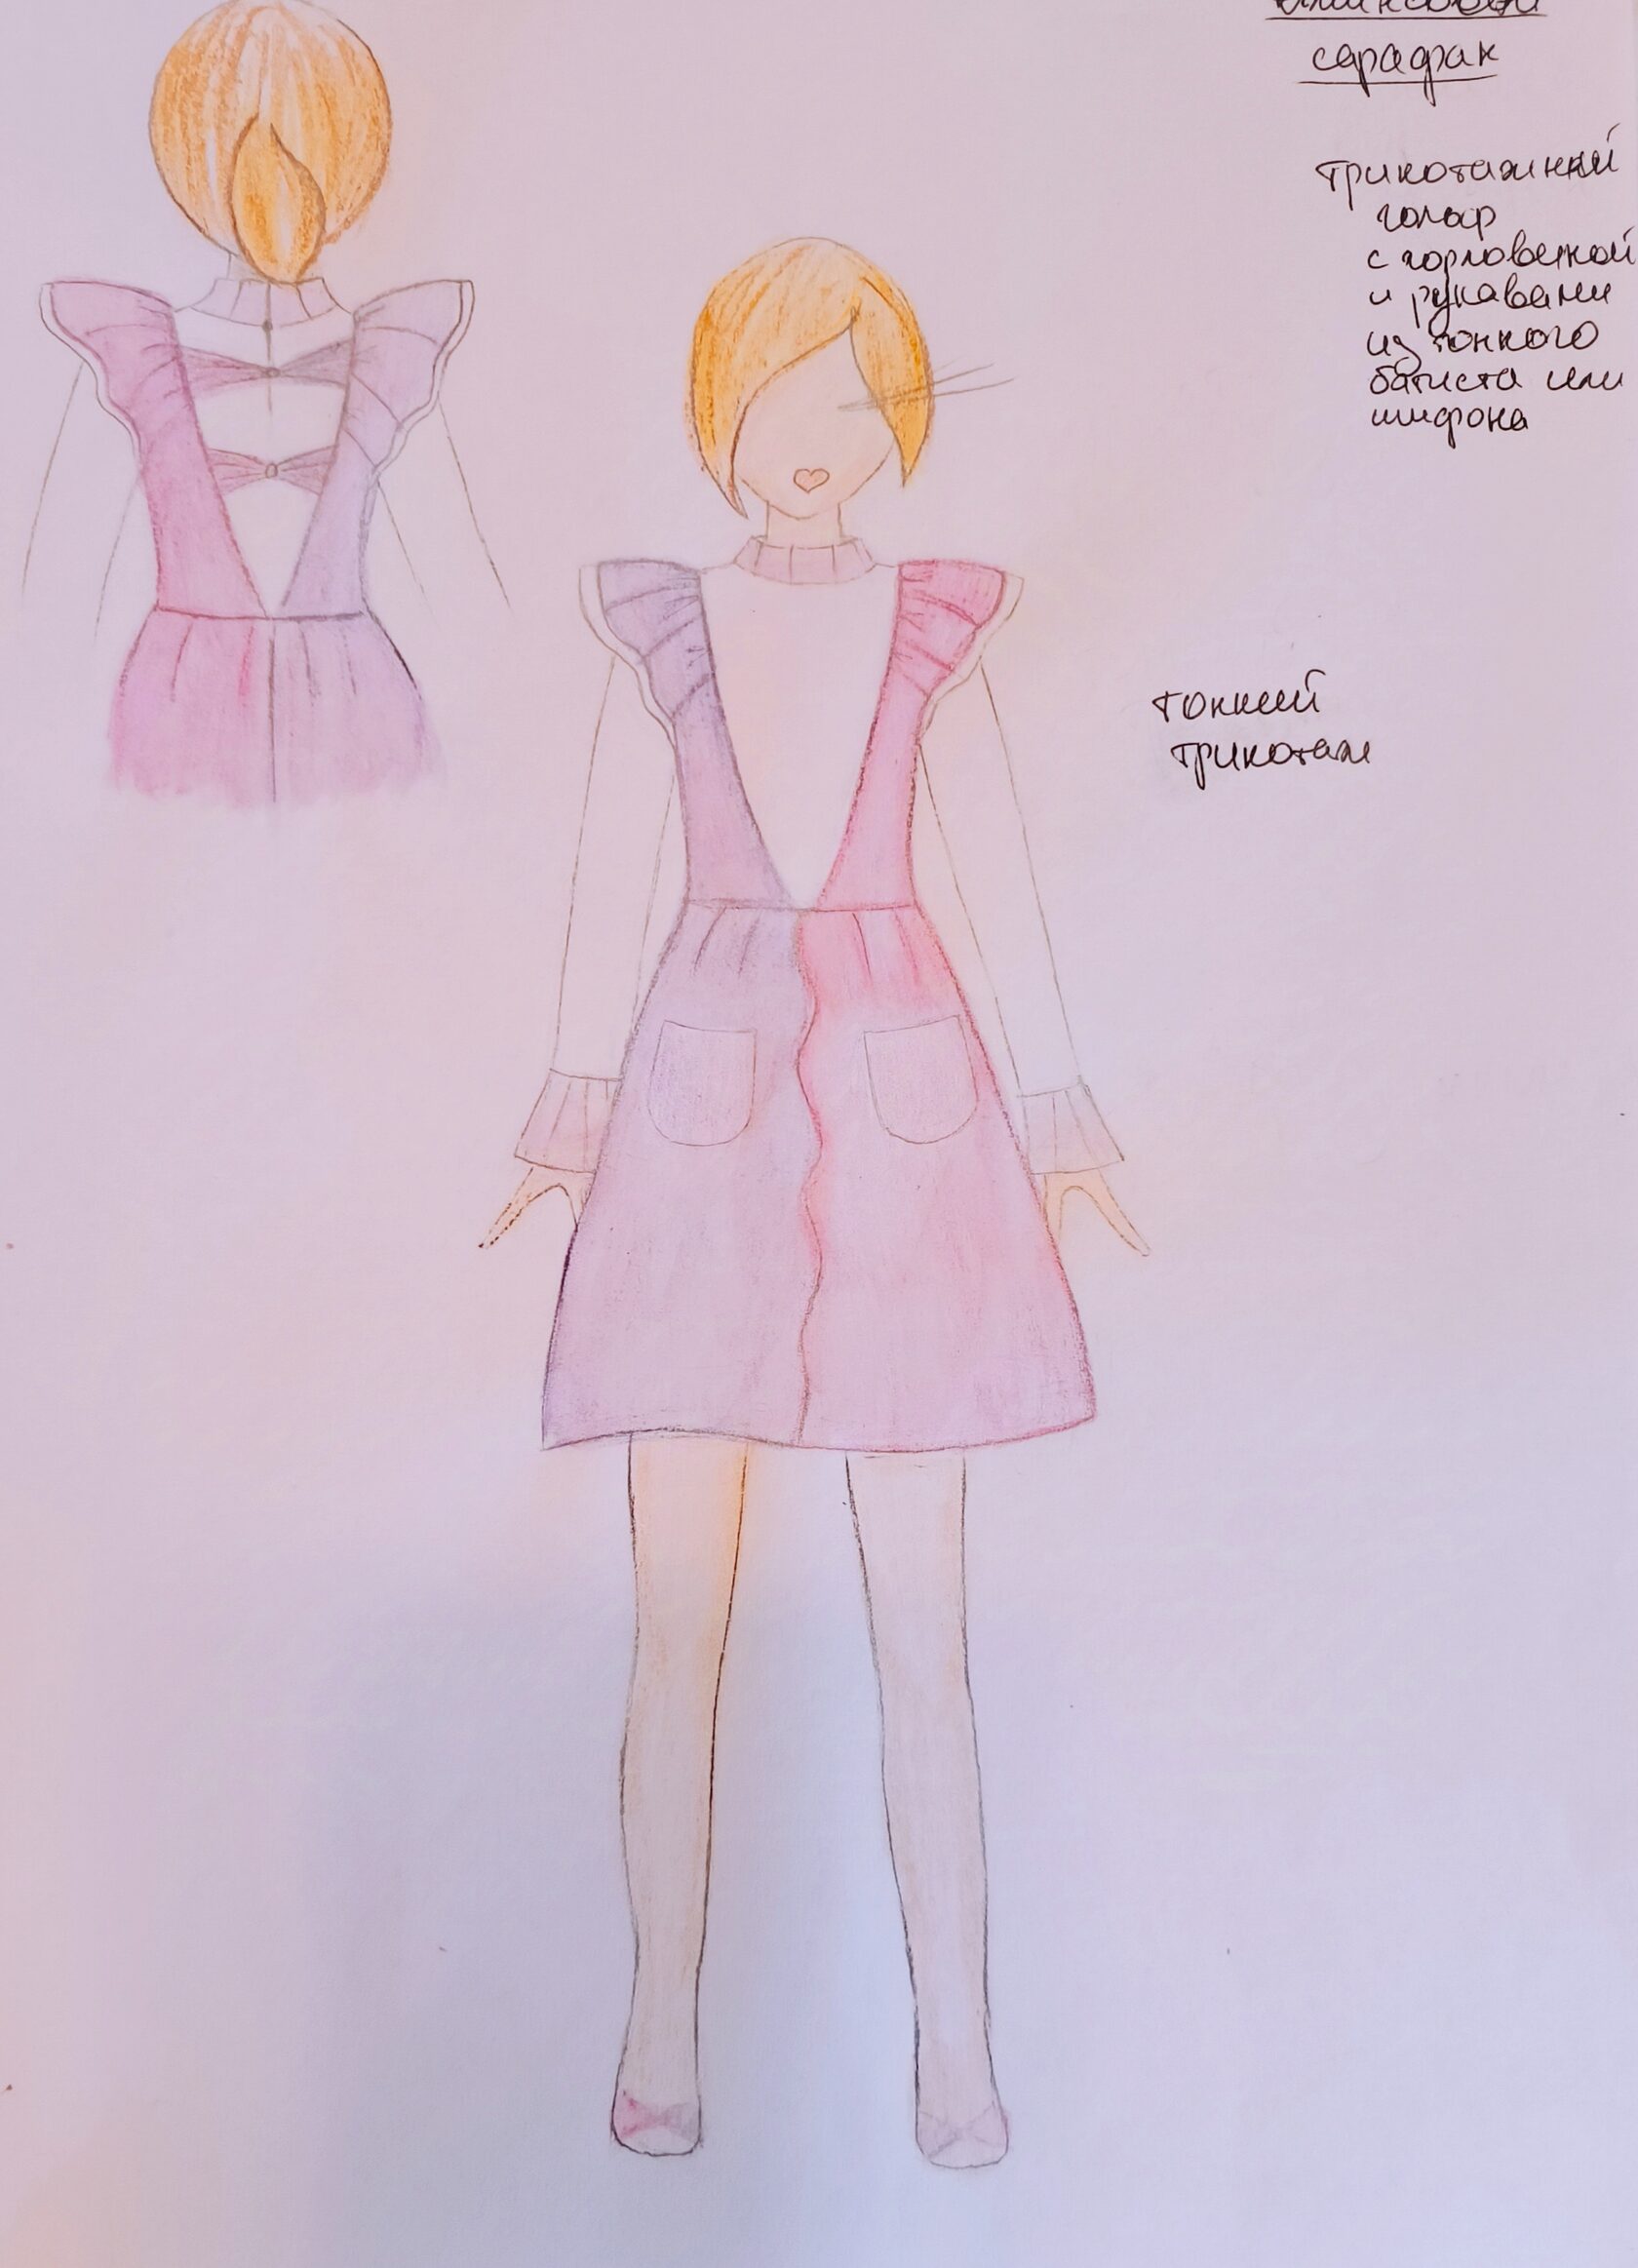 сарафан
трикотажный
гольф
с горловиной
и рукавами
из тонкого
батиста или
шифона
тонкий
трикотаж